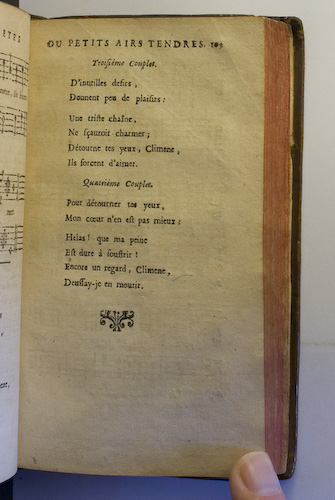 ETES
OU PETITS AIRS TENDRES. 109
Troisiéme Couplet.
D'inutilles desirs,
Donnent peu de plaisirs:
Une triste chaîne,
Ne sçauroit charmer;
Détourne tes yeux, Climene,
Ils forcent d'aimer.
Quatriéme Couplet.
Pour détourner tes yeux,
Mon cœur n'en est pas mieux:
Helas! que ma peine
Est dure à souffrir!
Encore un regard, Climene,
Deussay-je en mourir.